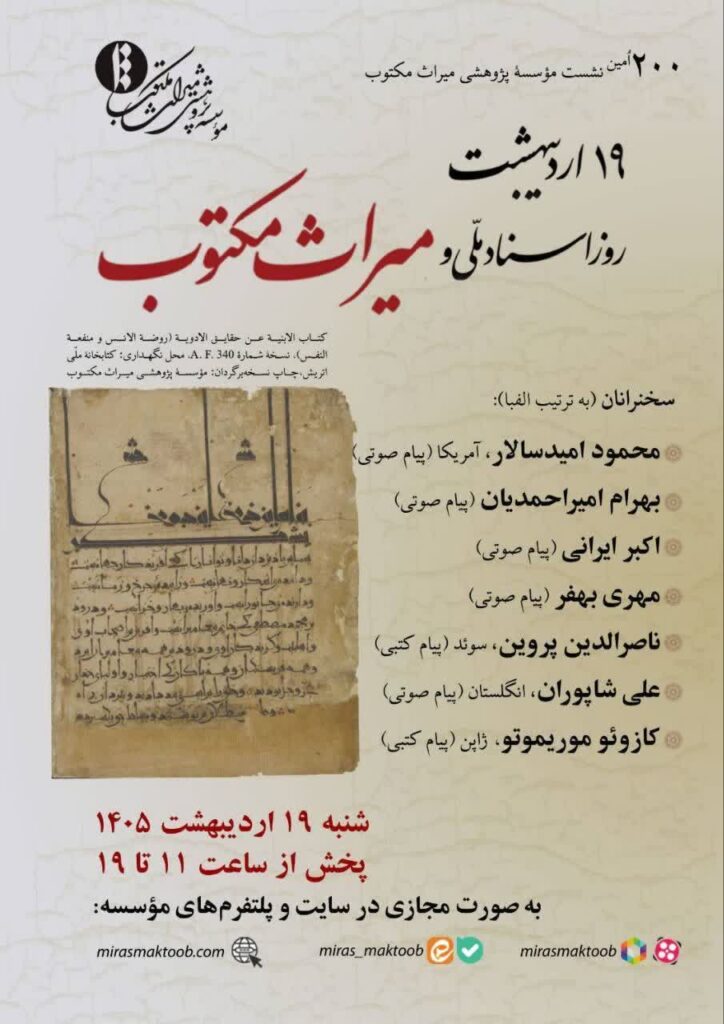 ۲۰۰اُمین نشست مؤسسهٔ پژوهشی میراث مکتوب
مؤسسه پژوهشی میراث مکتوب
۱۹ اردیبهشت
روز اسناد ملّی و میراث مکتوب
کتاب الابنیة عن حقایق الادویة (روضة الانس و منفعة
النفس)، نسخهٔ شمارهٔ A. F. 340، محل نگهداری: کتابخانهٔ ملّی
اتریش،چاپ نسخه‌برگردان: مؤسسهٔ پژوهشی میراث مکتوب
سخنرانان (به ترتیب الفبا):
محمود امیدسالار، آمریکا (پیام صوتی)
بهرام امیراحمدیان (پیام صوتی)
اکبر ایرانی (پیام صوتی)
مهری بهفر (پیام صوتی)
ناصرالدین پروین، سوئد (پیام کتبی)
علی شاپوران، انگلستان (پیام صوتی)
کازوئو موریموتو، ژاپن (پیام کتبی)
شنبه ۱۹ اردیبهشت ۱۴۰۵
پخش از ساعت ۱۱ تا ۱۹
به صورت مجازی در سایت و پلتفرم‌های مؤسسه:
mirasmaktoob
miras_maktoob
mirasmaktoob.com